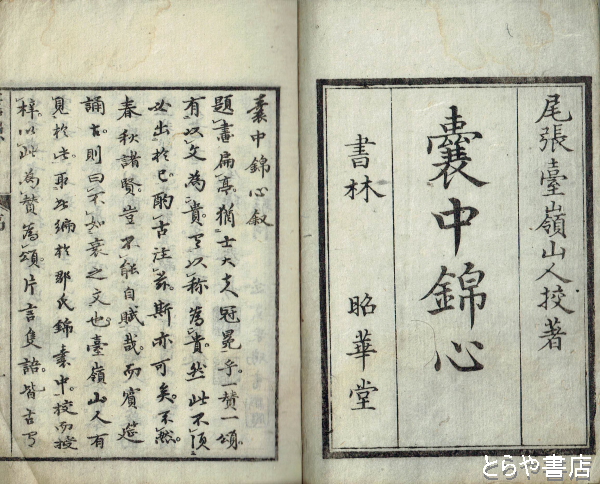 尾張臺嶺山人挍著
囊中錦心
書林 昭華堂
囊中錦心叙
題畵扁亭猶士大夫冠冕乎一賛一頌
有以文為貴有以称為貴然此不須
必出於己酌古注茲斯亦可矣不然
春秋諸賢豈不能自賦哉而賓筵
誦古則曰不如衰之文也臺嶺山人有
見於此取此編於那氏錦囊中挍而授
梓以此為賛為頌片言隻語皆古
とらや書店